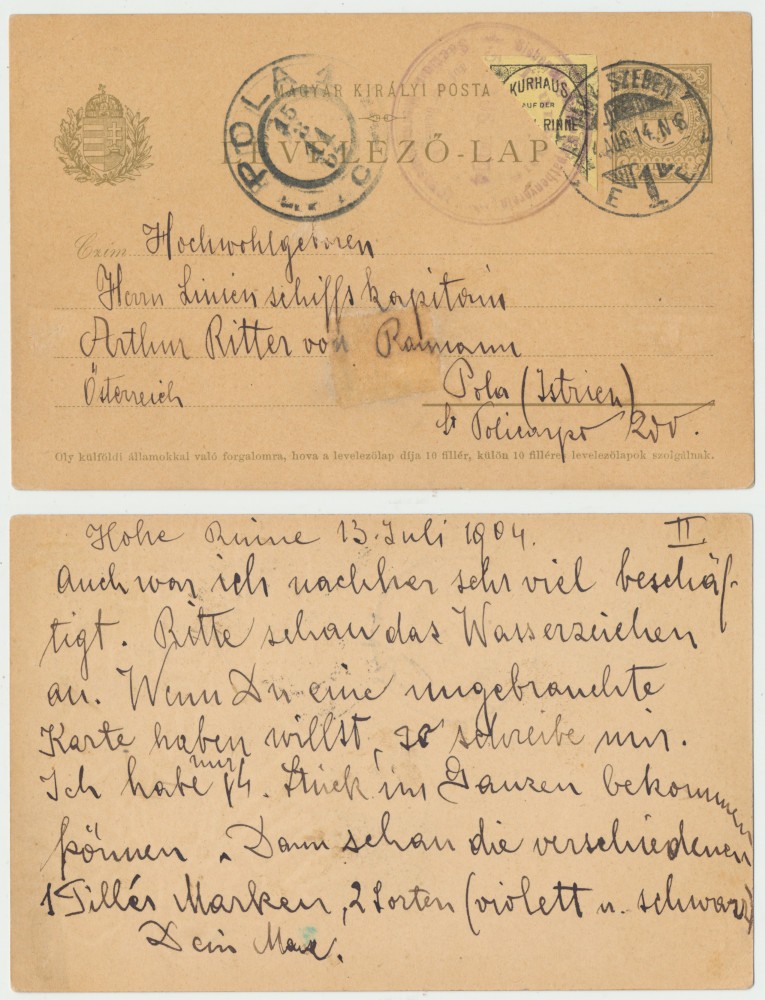 MAGYAR KIRÁLYI POSTA
LEVELEZŐ-LAP
POLA
KURHAUS
AUF DER
RINNE
SZEBEN
AUG. 14.
1
Czím Hochwohlgeboren
Herrn Linienschiffskapitain
Arthur Ritter von
Österreich
Pola (Istrien)
St Policarpo 200.
Oly külföldi államokkal való forgalomra, hova a levelezőlap díja 10 fillér, külön 10 filléres levelezőlapok szolgálnak.
Hohe Rinne 13. Juli 1904. II.
Auch war ich nachher sehr viel beschäf-
tigt. Bitte schau das Wasserzeichen
an. Wenn Du eine ungebrauchte
Karte haben willst, so schreibe mir.
Ich habe nur 14. Stück im Ganzen bekommen
können. Dann schau die verschiedenen
1 Fillér Marken, 2 Sorten (violett u. schwarz)
Dein